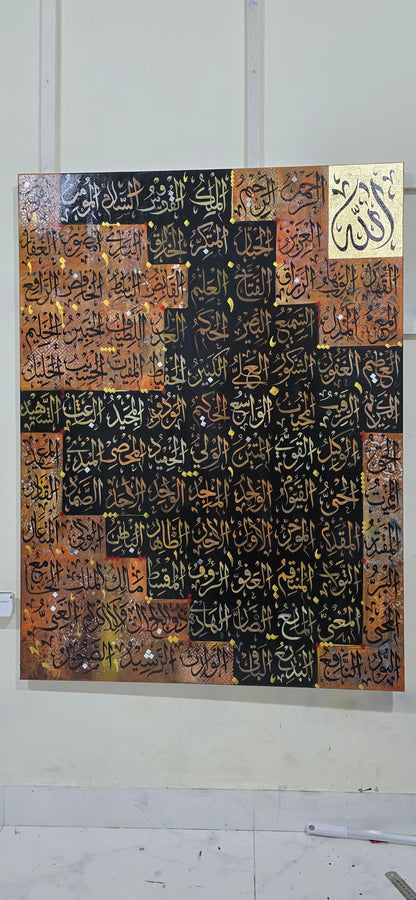 الله
الرحمن الرحيم الملك القدوس السلام المؤمن
العزيز الجبار المتكبر الخالق البارئ المصور الغفار
القهار الوهاب الرزاق الفتاح العليم القابض الباسط الخافض الرافع
المعز المذل السميع البصير الحكم العدل اللطيف الخبير الحليم
العظيم الغفور الشكور العلي الكبير الحفيظ المقيت الحسيب الجليل
الكريم الرقيب المجيب الواسع الحكيم الودود المجيد الباعث الشهيد
الوكيل القوي المتين الولي الحميد المحصي المبدئ المعيد
المميت الحي القيوم الواجد الماجد الواحد الأحد الصمد القادر
المقتدر المقدم المؤخر الأول الآخر الظاهر الباطن الوالي المتعال
البر التواب المنتقم العفو الرؤوف المقسط مالك الملك الجامع
المغني المانع الضار الهادي ذو الجلال والإكرام الغني
النور النافع البديع الباقي الوارث الرشيد الصبور